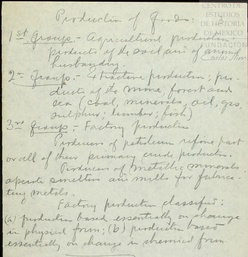 Production of Goods:
1st Group. - Agricultural production -
products of the soil and of animal
husbandry.
2nd Group. - Extractive production; pro-
ducts of the mine, forest and
sea (coal, minerals, oil, gas,
sulphur; lumber; fish)
3rd Group - Factory production
Producers of petroleum refine part
or all of their primary crude production.
Producers of metallic minerals
operate smelters and mills for fabrica-
ting metals.
Factory production classified:
(a) production based essentially on change
in physical form; (b) production based
essentially on change in chemical form
CENTRO DE
ESTUDIOS
DE HISTORIA
DE MEXICO
FUNDACION
Carlos Slim